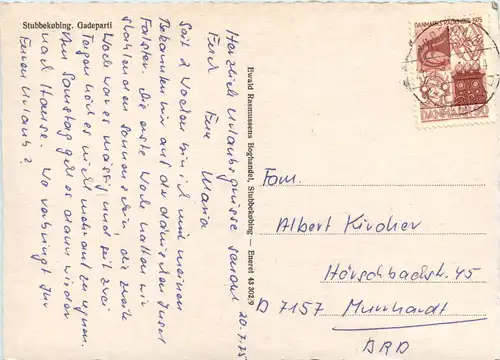 Stubbekøbing. Gadeparti
20.7.75
Seit 2 Wochen bin ich mit meinen
Bekannten hier auf der dänischen Insel
Falster. Die erste Woche hatten wir
strahlenden Sonnenschein, die zweite
Woche war es mässig und seit zwei
Tagen hört es nicht mehr auf zu regnen.
Am Samstag geht es dann wieder
nach Hause. Wo verbringt Ihr
Euren Urlaub?
Herzliche Urlaubsgrüsse sendet
Euch Eure Maria
Ewald Rasmussens Boghandel, Stubbekøbing — Eneret 43 302/9
DANMARK
Fam.
Albert Kircher
Hörschbachstr. 45
D 7157 Murrhardt
BRD